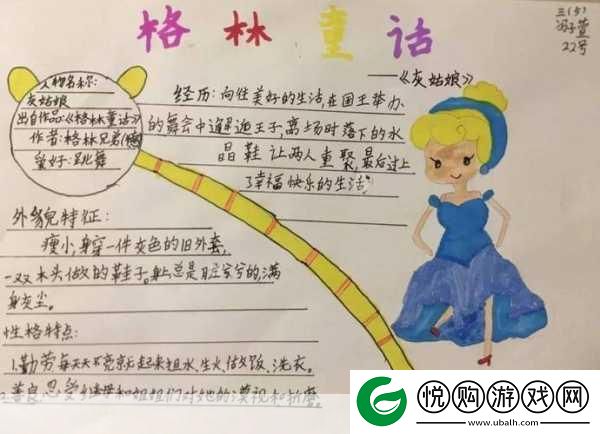 格林童话
三(5)
冯子萱
22号
——《灰姑娘》
人物名称:
灰姑娘
出自作品:《格林童话》
作者:格林兄弟(德)
爱好:跳舞
经历:向往美好的生活,在国王举办
的舞会中邂逅王子,离场时落下的水
晶鞋 让两人重聚,最后过上
了幸福快乐的生活。
外貌特征:
瘦小,身穿一件灰色的旧外套,
一双木头做的鞋子。身上总是脏兮兮的,满
身灰尘。
性格特点:
1.勤劳 每天天不亮就起来担水,生火,做饭,洗衣。
2.善良,忍受继母和姐姐们对她的漠视和折磨。
悦购游戏网
www.ubalh.com